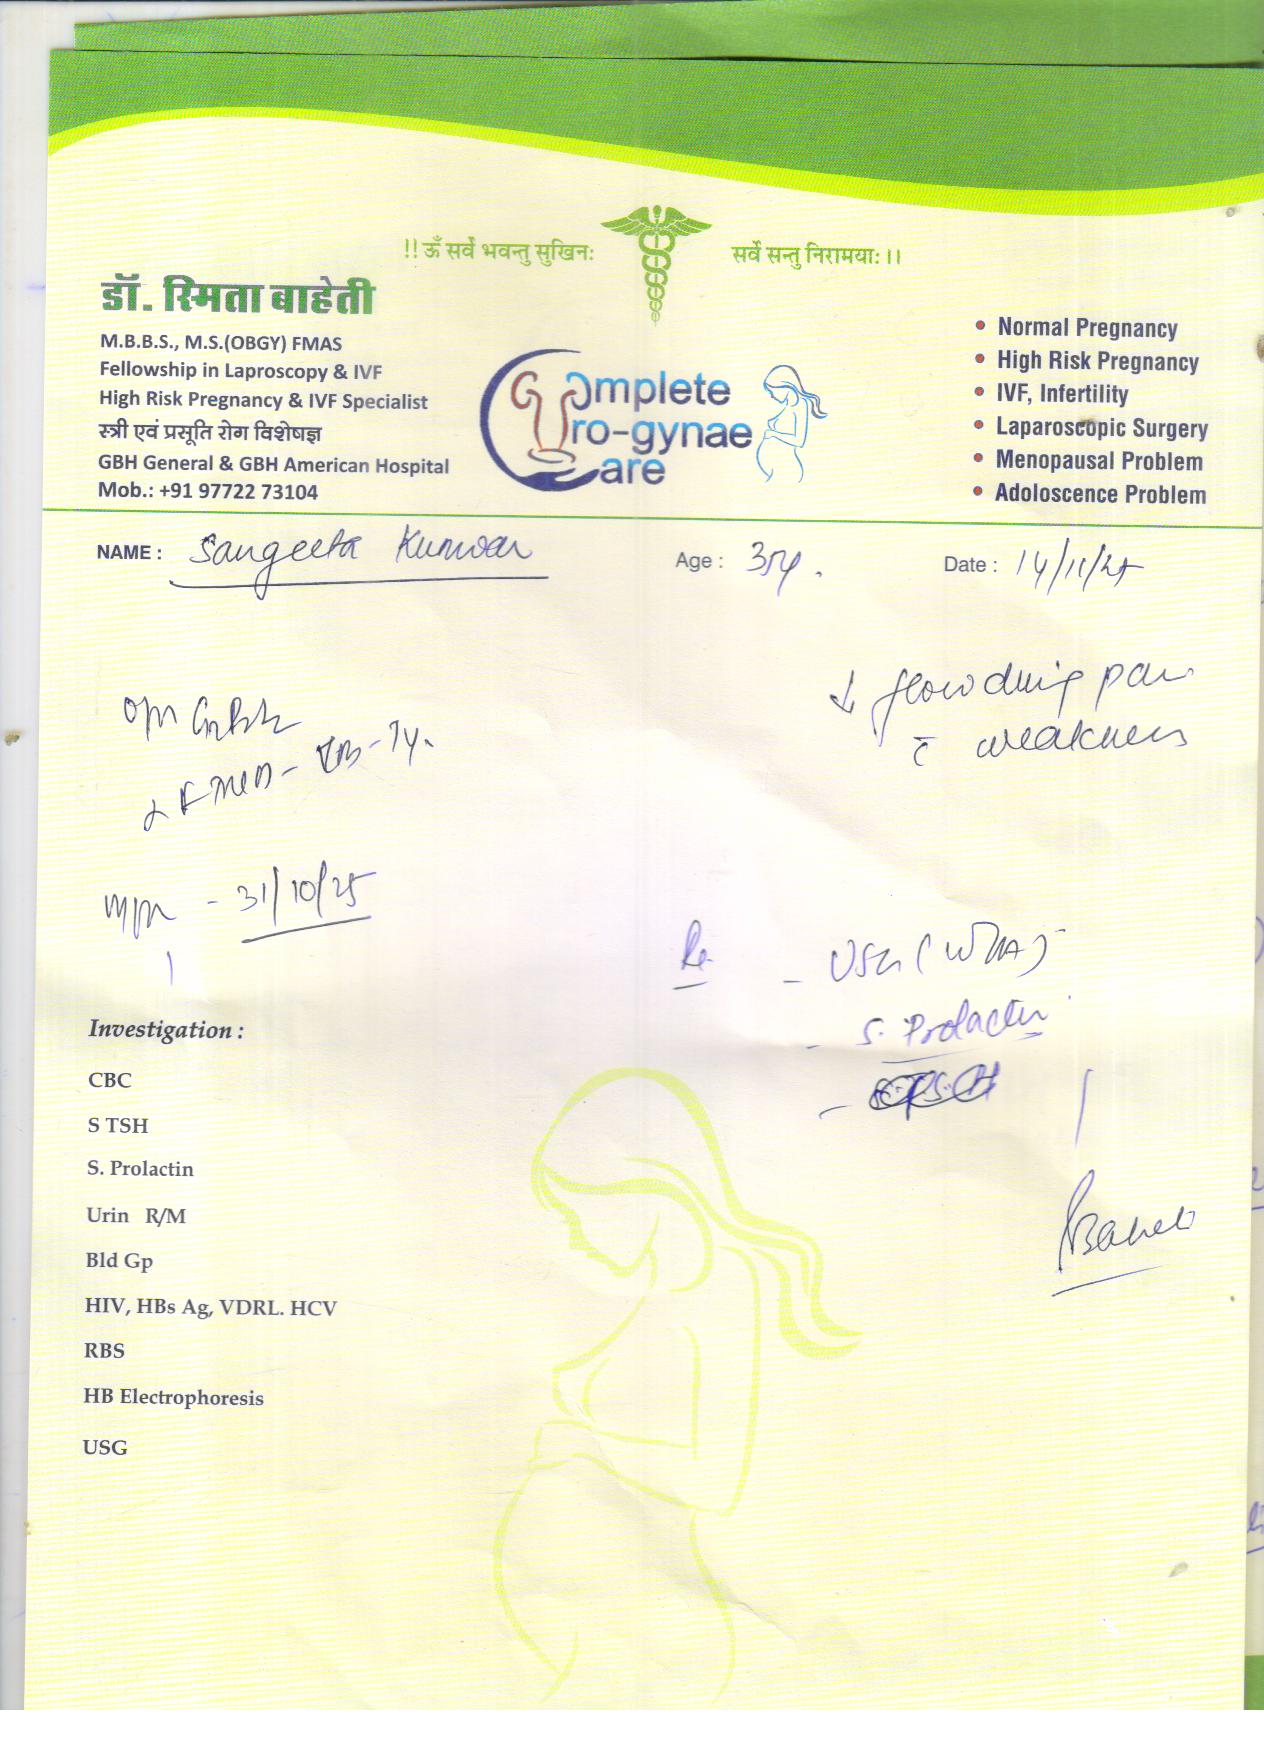 !! ॐ सर्वे भवन्तु सुखिनः सर्वे सन्तु निरामयाः ।।
डॉ. स्मिता बाहेती
M.B.B.S., M.S.(OBGY) FMAS
Fellowship in Laproscopy & IVF
High Risk Pregnancy & IVF Specialist
स्त्री एवं प्रसूति रोग विशेषज्ञ
GBH General & GBH American Hospital
Mob.: +91 97722 73104
Complete
Uro-gynae
Care
• Normal Pregnancy
• High Risk Pregnancy
• IVF, Infertility
• Laparoscopic Surgery
• Menopausal Problem
• Adoloscence Problem
NAME : Sangeeta Kunwar Age : 35y. Date : 14/11/25
↓ flow during
c̄ weakness
- 31/10/25
Investigation :
CBC
S TSH
S. Prolactin
Urin R/M
Bld Gp
HIV, HBs Ag, VDRL. HCV
RBS
HB Electrophoresis
USG
- USG
- S. Prolactin